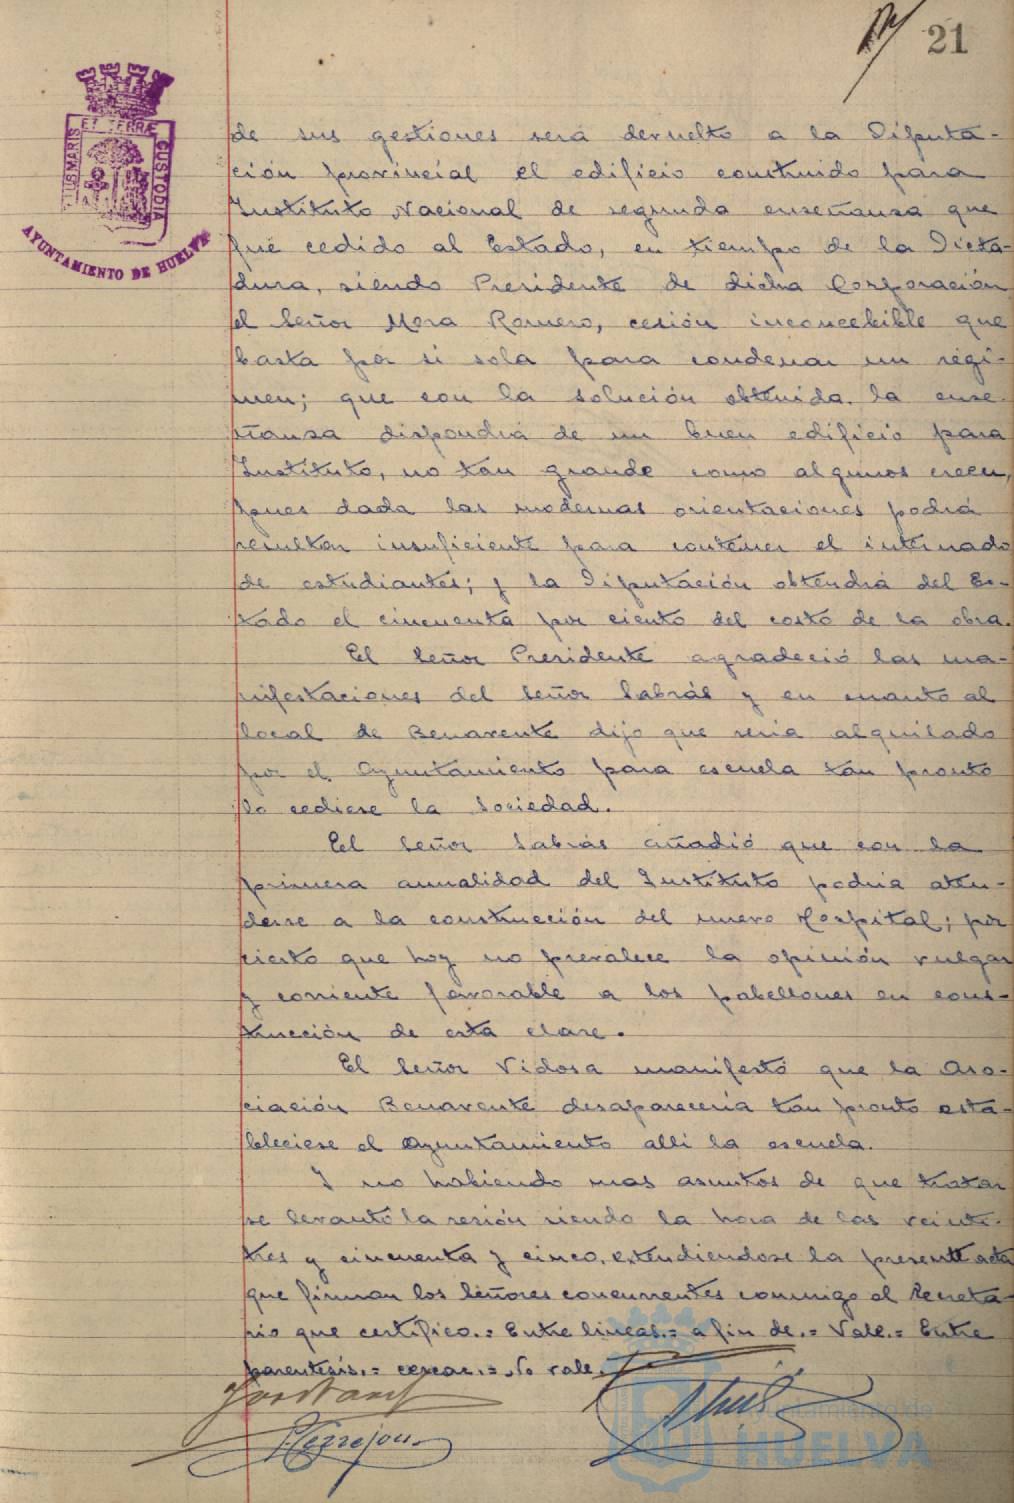 21
PORTUS MARIS ET TERRÆ CUSTODIA
AYUNTAMIENTO DE HUELVA
de sus gestiones será devuelto a la Diputa-
ción provincial el edificio construido para
Instituto Nacional de segunda enseñanza que
fué cedido al Estado, en tiempo de la Dicta-
dura, siendo Presidente de dicha Corporación
el Señor Mora Romero, cesión inconcebible que
basta por si sola para condenar un régi-
men; que con la solución obtenida la ense-
ñanza dispondrá de un buen edificio para
Instituto, no tan grande como algunos creen,
pues dada las modernas orientaciones podrá
resultar insuficiente para contener el internado
de estudiantes; y la Diputación obtendrá del Es-
tado el cincuenta por ciento del costo de la obra.
El Señor Presidente agradeció las ma-
nifestaciones del Señor Sabrás y en cuanto al
local de Benavente dijo que seria alquilado
por el Ayuntamiento para escuela tan pronto
lo cediese la Sociedad.
El Señor Sabrás añadió que con la
primera anualidad del Instituto podria aten-
derse a la construcción del nuevo Hospital; por
cierto que hoy no prevalece la opinión vulgar
y corriente favorable a los pabellones en cons-
trucción de esta clase.
El Señor Vidosa manifestó que la Aso-
ciación Benavente desapareceria tan pronto esta-
bleciese el Ayuntamiento alli la escuela.
Y no habiendo mas asuntos de que tratar
se levantó la sesión siendo la hora de las veinti-
tres y cincuenta y cinco, extendiendose la presente acta
que firman los Señores concurrentes conmigo el Secreta-
rio que certifico.= Entre lineas.= a fin de.= Vale.= Entre
parentesis.= cercar.= No vale.
P. Cerrejon
Ayuntamiento de
HUELVA